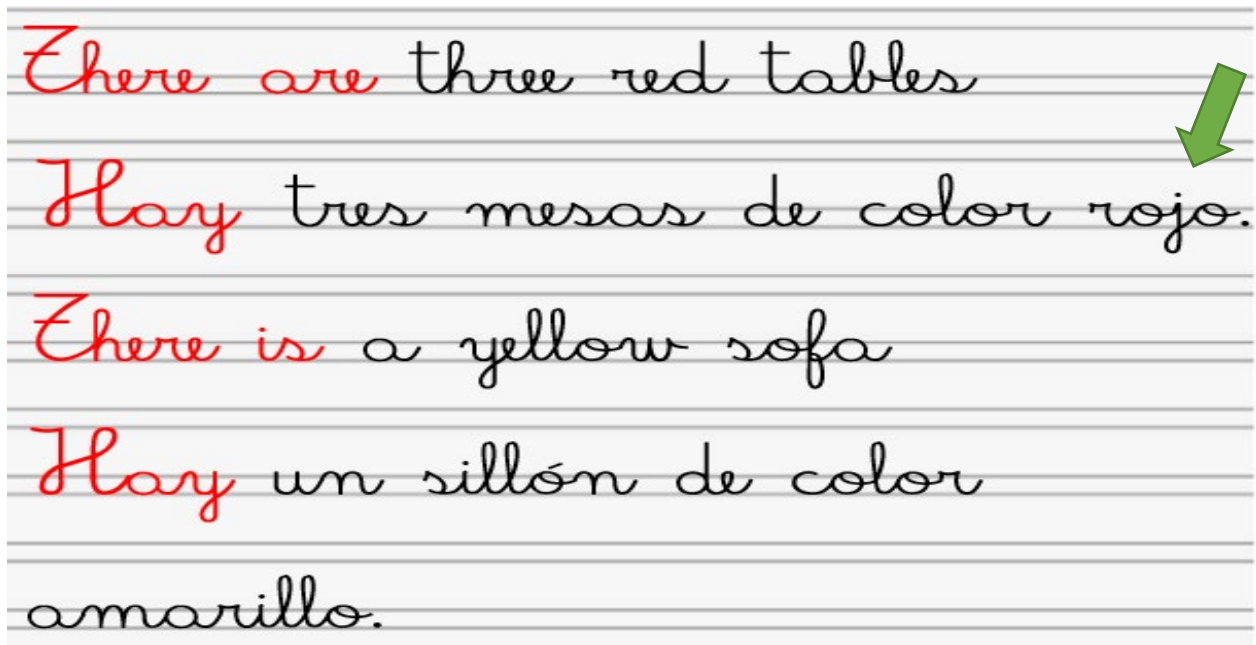 There are three red tables
Hay tres mesas de color rojo.
There is a yellow sofa
Hay un sillón de color
amarillo.